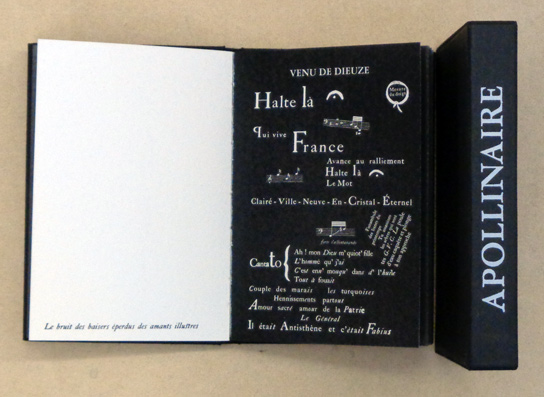 Le bruit des baisers éperdus des amants illustres
VENU DE DIEUZE
Halte là
Qui vive
France
Avance au ralliement
Halte là
Le Mot
Clairé-Ville-Neuve-En-Cristal-Éternel
Cantato
Ah ! mon Dieu m' quiot' fille
L'hommé qu' j'ai
C'est eun' mouqu' dans d' l'huile
Tout à fouait
Couple des marais les turquoises
Hennissements partout
Amour sacré amour de la Patrie
Le Général
Il était Antisthène et c'était Fabius
APOLLINAIRE